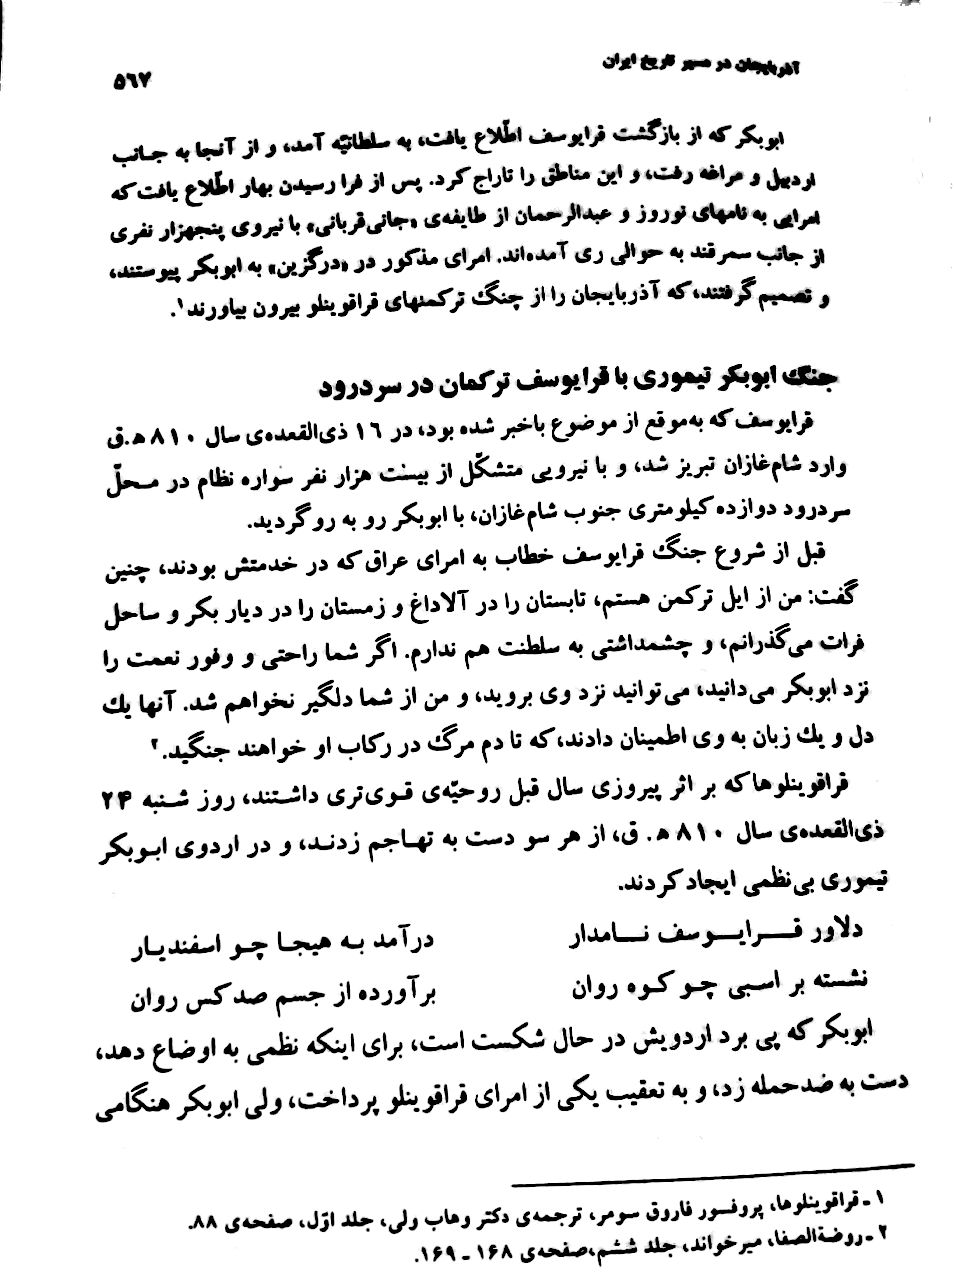 آذربایجان در مسیر تاریخ ایران
۵۶۷
ابوبکر که از بازگشت قرایوسف اطّلاع یافت، به سلطانیّه آمد، و از آنجا به جانب
اردبیل و مراغه رفت، و این مناطق را تاراج کرد. پس از فرا رسیدن بهار اطّلاع یافت که
امرایی به نامهای نوروز و عبدالرحمان از طایفه‌ی «جانی‌قربانی» با نیروی پنجهزار نفری
از جانب سمرقند به حوالی ری آمده‌اند. امرای مذکور در «درگزین» به ابوبکر پیوستند،
و تصمیم گرفتند، که آذربایجان را از چنگ ترکمنهای قراقوینلو بیرون بیاورند۱.
جنگ ابوبکر تیموری با قرایوسف ترکمان در سردرود
قرایوسف که به‌موقع از موضوع باخبر شده بود، در ۱۶ ذی‌القعده‌ی سال ۸۱۰ ه‍.ق
وارد شام‌غازان تبریز شد، و با نیرویی متشکّل از بیست هزار نفر سواره نظام در محلّ
سردرود دوازده کیلومتری جنوب شام‌غازان، با ابوبکر رو به رو گردید.
قبل از شروع جنگ قرایوسف خطاب به امرای عراق که در خدمتش بودند، چنین
گفت: من از ایل ترکمن هستم، تابستان را در آلاداغ و زمستان را در دیار بکر و ساحل
فرات می‌گذرانم، و چشمداشتی به سلطنت هم ندارم. اگر شما راحتی و وفور نعمت را
نزد ابوبکر می‌دانید، می‌توانید نزد وی بروید، و من از شما دلگیر نخواهم شد. آنها یك
دل و یك زبان به وی اطمینان دادند، که تا دم مرگ در رکاب او خواهند جنگید.۲
قراقوینلوها که بر اثر پیروزی سال قبل روحیّه‌ی قوی‌تری داشتند، روز شنبه ۲۴
ذی‌القعده‌ی سال ۸۱۰ ه‍. ق، از هر سو دست به تهاجم زدند، و در اردوی ابوبکر
تیموری بی‌نظمی ایجاد کردند.
دلاور قرایوسف نامدار درآمد به هیجا چو اسفندیار
نشسته بر اسبی چو کوه روان برآورده از جسم صدکس روان
ابوبکر که پی برد اردویش در حال شکست است، برای اینکه نظمی به اوضاع دهد،
دست به ضدحمله زد، و به تعقیب یکی از امرای قراقوینلو پرداخت، ولی ابوبکر هنگامی
۱ ـ قراقوینلوها، پروفسور فاروق سومر، ترجمه‌ی دکتر وهاب ولی، جلد اوّل، صفحه‌ی ۸۸.
۲ ـ روضة‌الصفا، میرخواند، جلد ششم، صفحه‌ی ۱۶۸ ـ ۱۶۹.